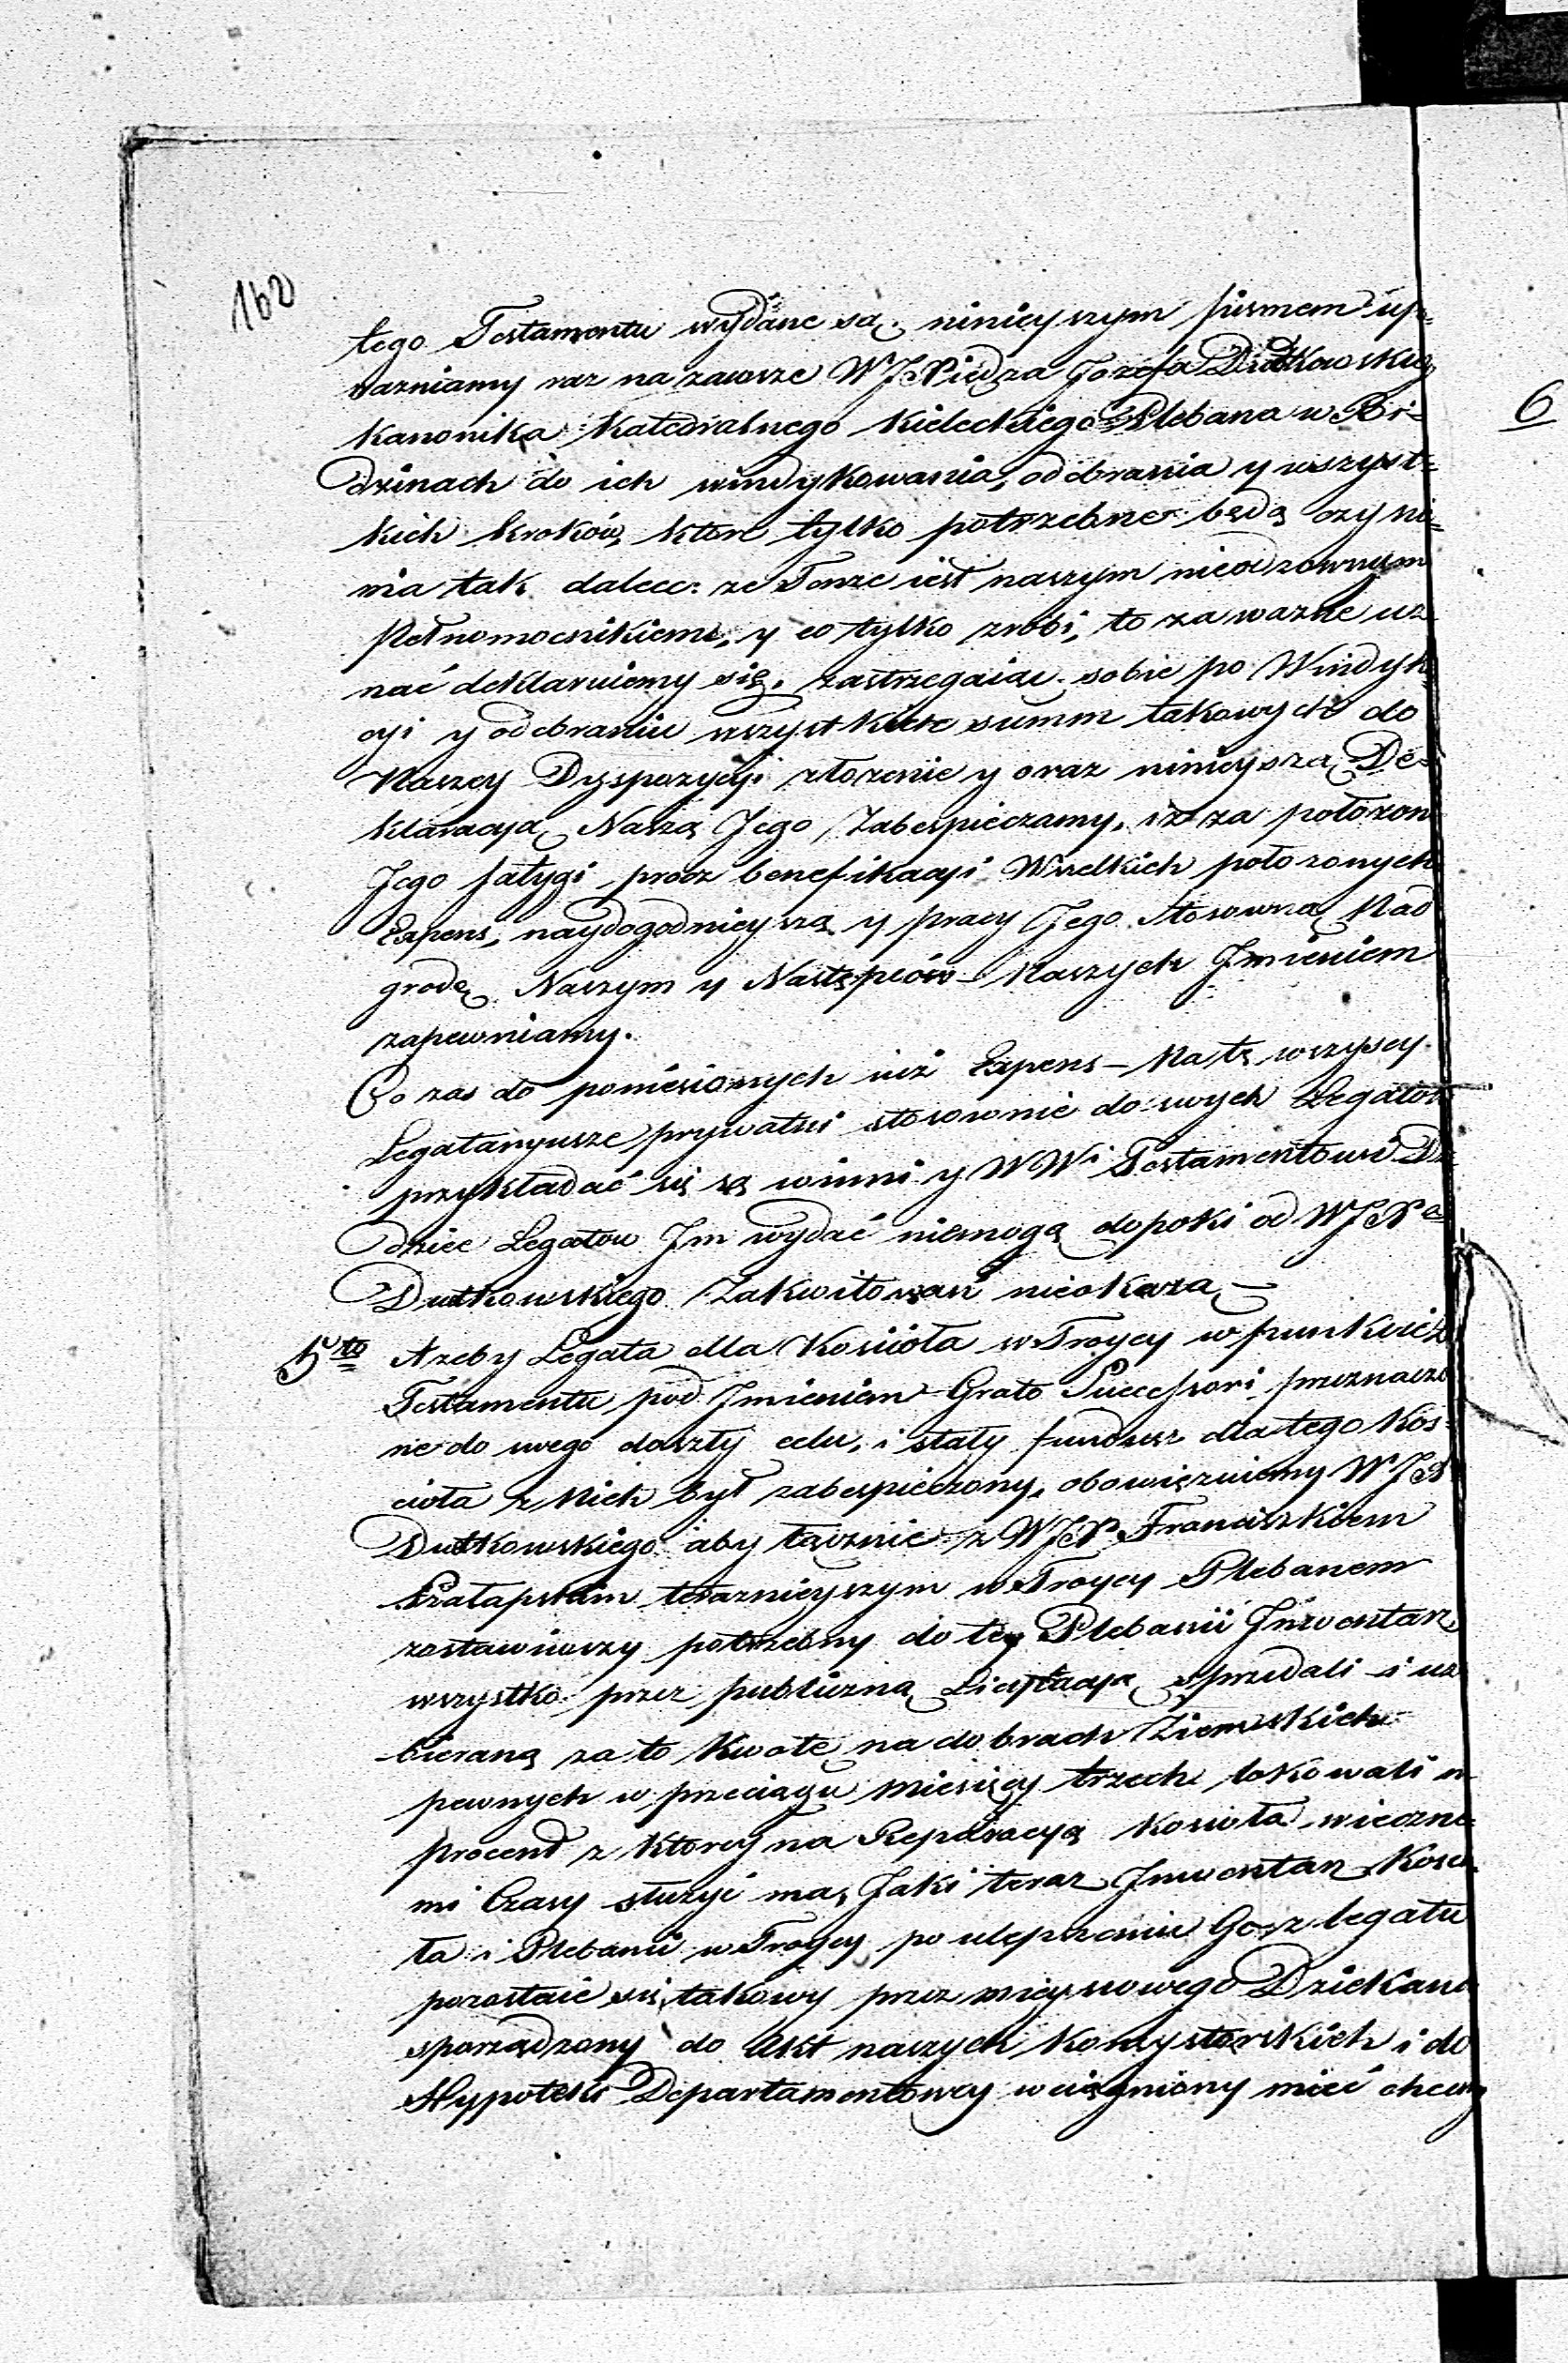 162
6
tego Testamentu wydane są, ninieyszym pismem up=
ważniamy raz na zawsze WJX iędza Jozefa Dutkowskieg
Kanonika Katedralnego Kieleckiego Plebana w
dzinach do ich windykowania, odebrania y wszyst=
kich krokow, ktore tylko potrzebne będą czynie=
nia tak dalece: że Tenże iest naszym nieodzownym
Pełnomocnikiem, y co tylko zrobi, to za ważne uz
nać deklaruiemy się, zastrzegaiąc sobie po Windyk
cyi y odebraniu wszystkich summ takowych do
Naszey Dyspozycyi złożenie y oraz ninieyszą De=
klaracyą Naszą Jego Zabespieczamy, iż za położon
Jego fatygi procz benefikacyi Wszelkich położonych
Expens, naydogodnieyszą y pracy Jego stosowną Nad
grodę Naszym y Następców Naszych Jmieniem
zapewniamy.
Co zas do poniesionych iuż Expens – Na tę wszyscy
Legataryusze prywatni stosownie do swych Legatow
przykładać się są winni y WWi Testamentowi Dz
dzice Legatow Jm wydać niemogą dopoki od WJXa
Dutkowskiego Zakwitowań nieokażą –
5to Ażeby Legata dla Kościoła w Troycy w punkcie
Testamentu pod Jmieniem Grato Successori przeznaczo
ne do swego doszły celu, i stały fundusz dla tego Koś=
cioła z Nich był zabespieczony, obowięzuiemy WJX
Dutkowskiego aby łącznie z WJX Franciszkiem
teraznieyszym w Troycy Plebanem
zostawiwszy potrzebny do tey Plebanii Jnwentarz
wszystko przez publiczną Licytacyą sprzedali i uz
bieraną za to Kwotę na dobrach Ziemskich
pewnych w przeciągu Miesięcy trzech lokowali n
procent z ktorey na Reperacyą Kościoła wieczne=
mi Czasy służyć ma, Jaki teraz Jnwentarz Kościo
ła i Plebanii w Troycy po ulepszeniu Go z legatu
pozostaie się, takowy przez mieyscowego Dziekana
sporządzony do Akt naszych Konsystorskich i do
Hypoteki Departamentowey wciągniony mieć chcemy